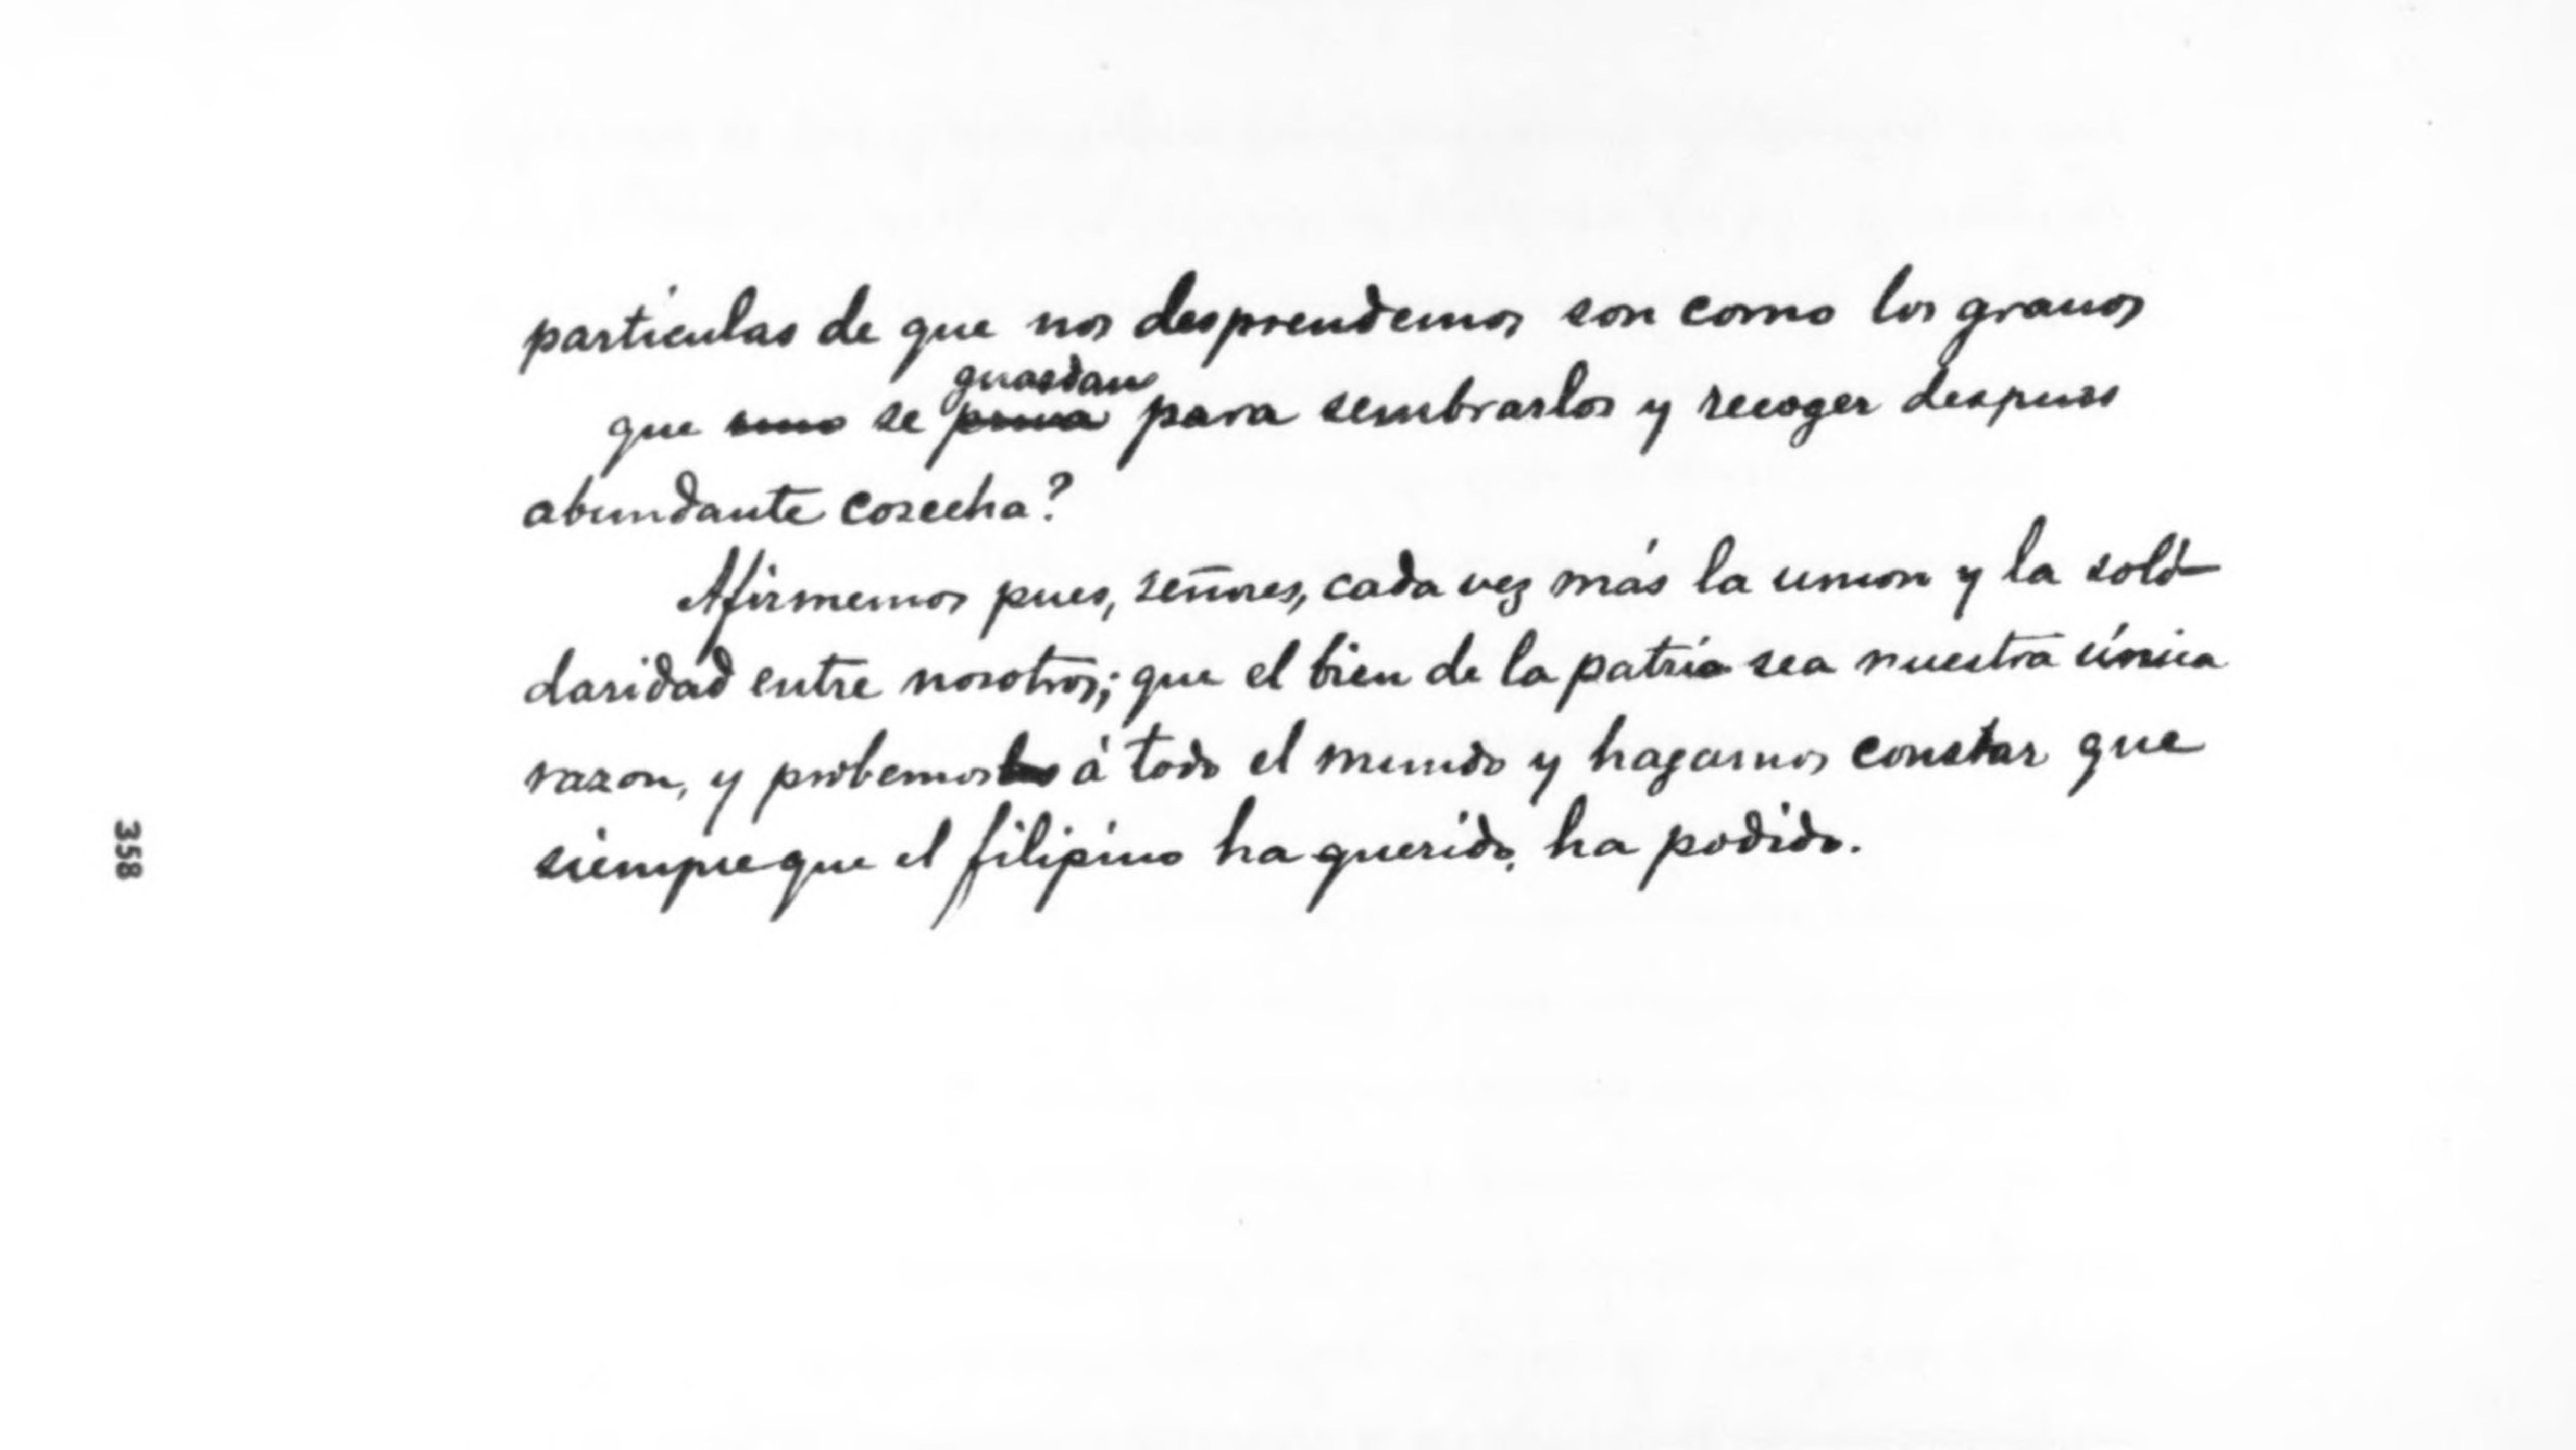 particulas de que nos desprendemos son como los granos
que uno se priva guardan para sembrarlos y recoger despues
abundante cosecha?
Afirmemos pues, señores, cada vez más la union y la soli-
daridad entre nosotros; que el bien de la patria sea nuestra única
razon, y probemoslo á todo el mundo y hagamos constar que
siempre que el filipino ha querido, ha podido.
358